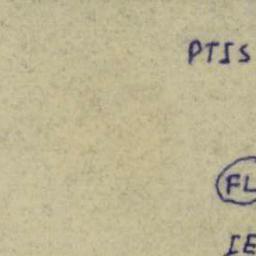 PTIS
FL
IE